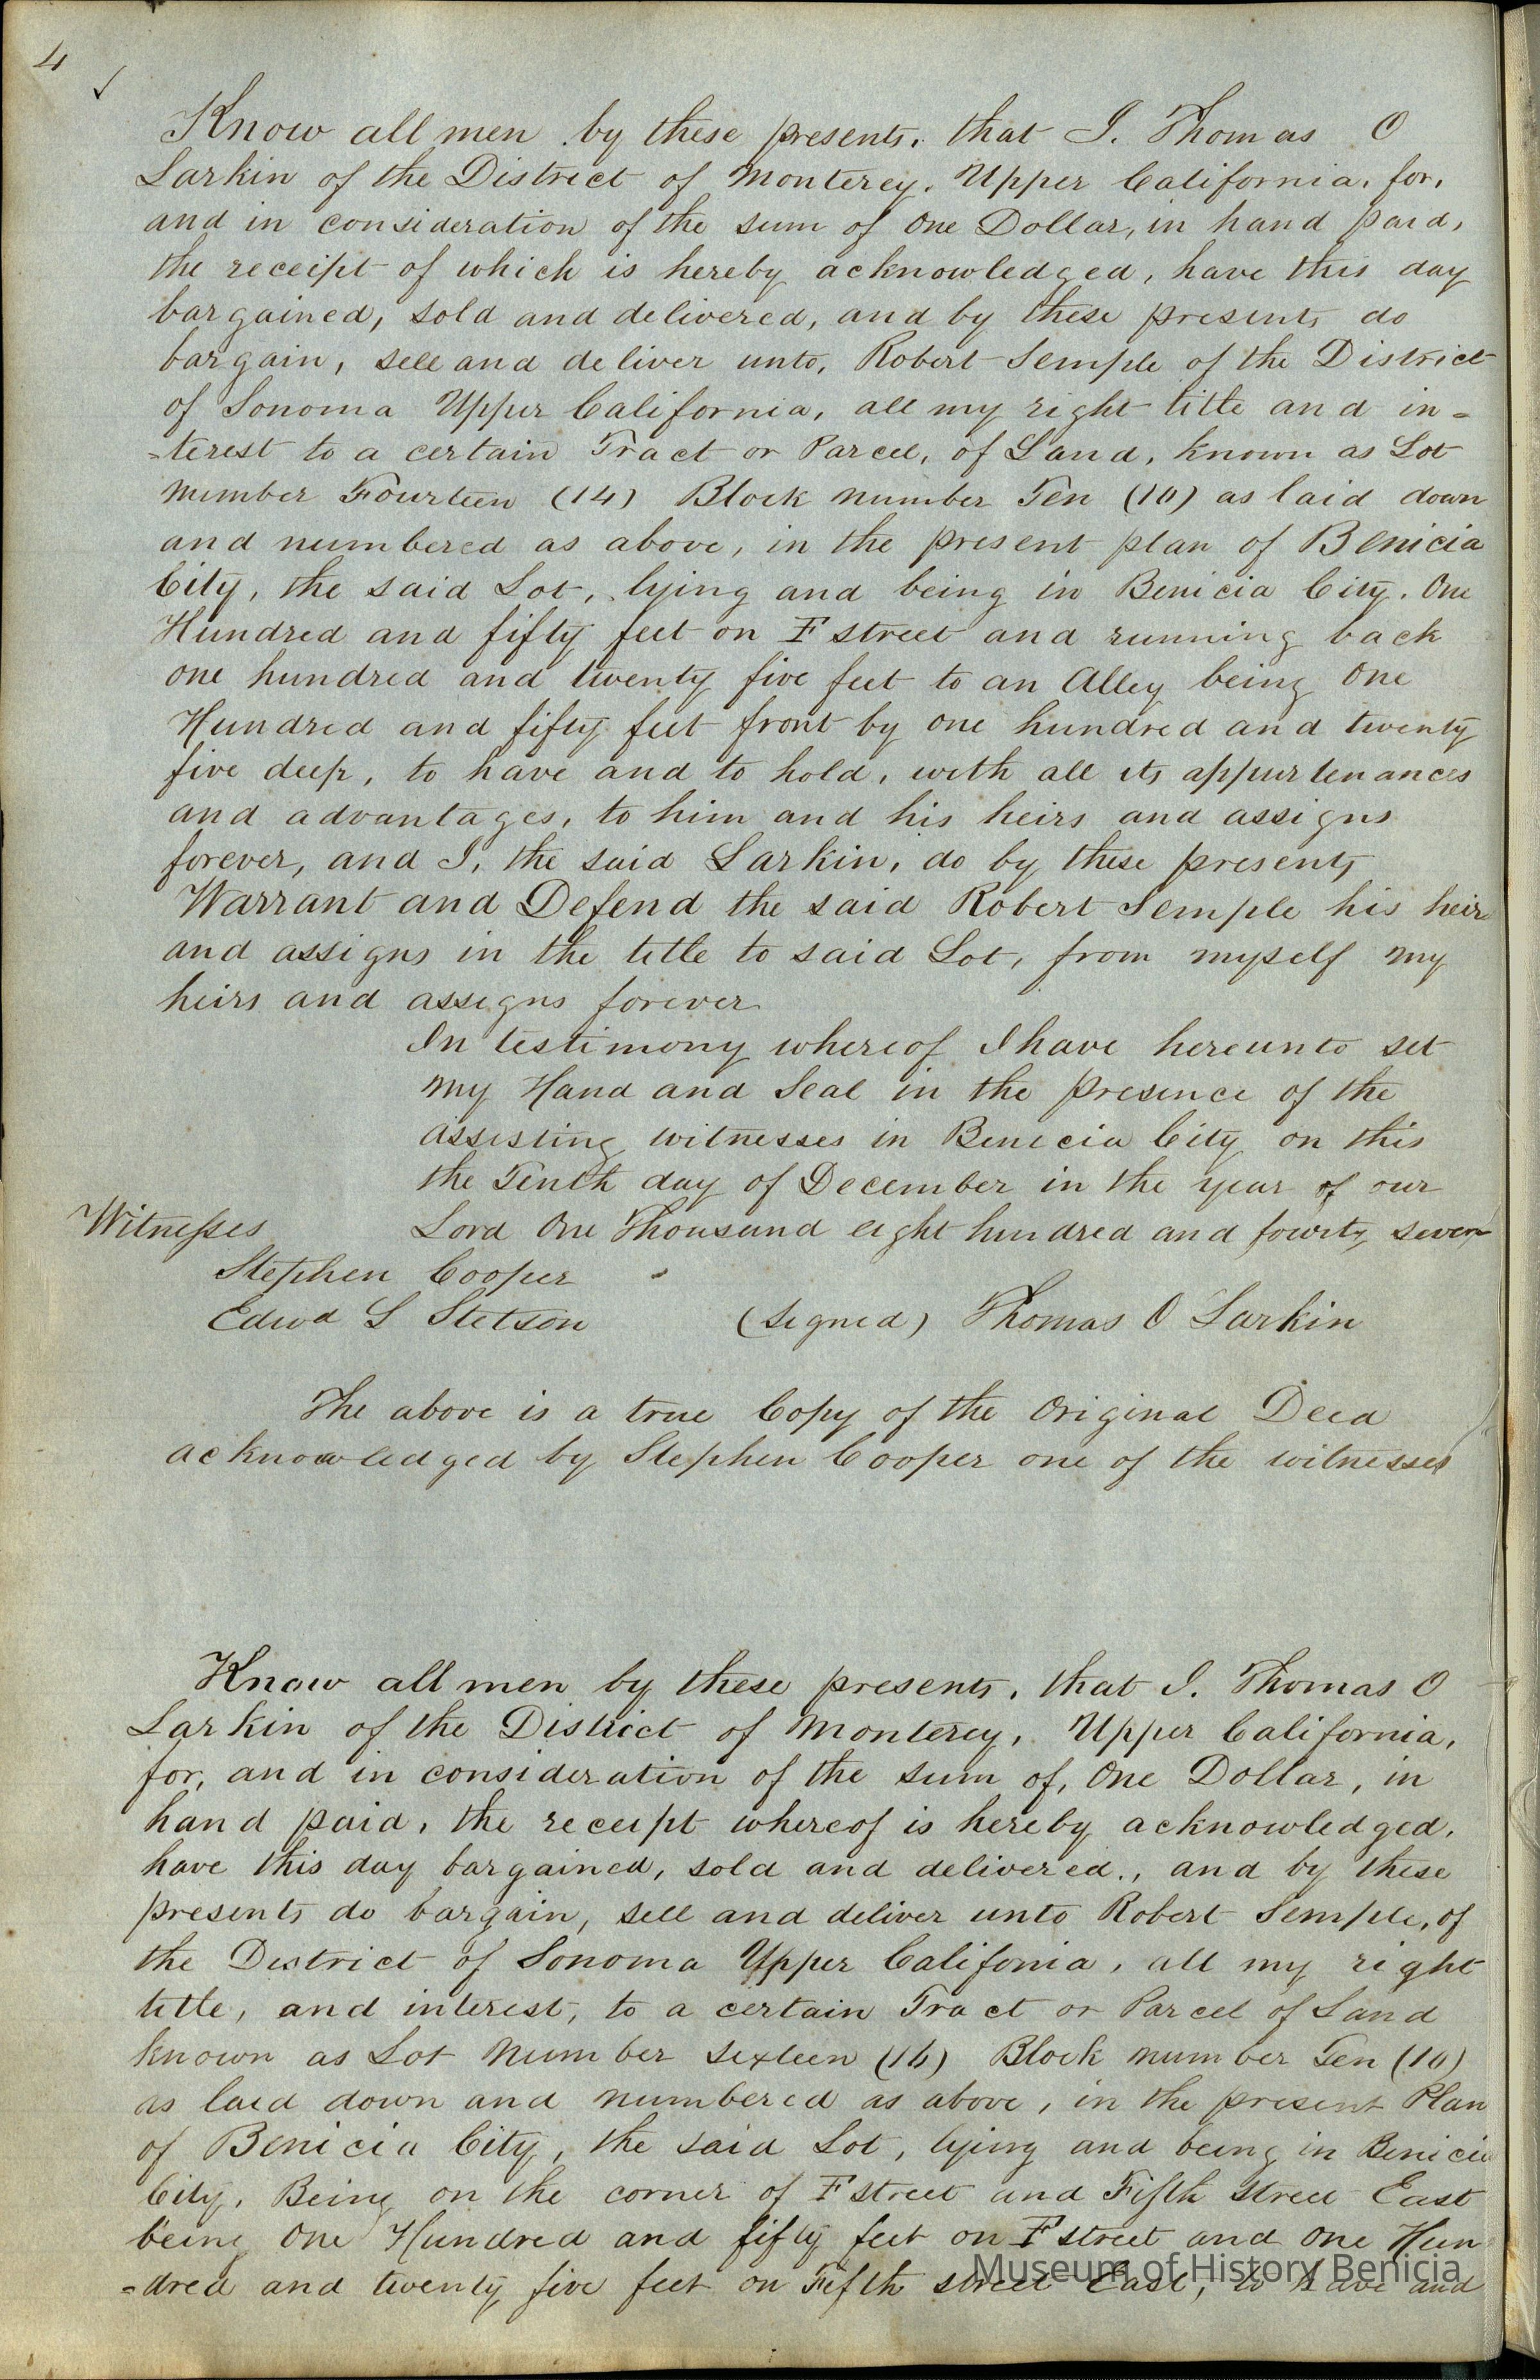 4
✓
Know all men by these presents, that I, Thomas O
Larkin of the District of Monterey, Upper California, for,
and in consideration of the sum of One Dollar, in hand paid,
the receipt of which is hereby acknowledged, have this day
bargained, sold and delivered, and by these presents do
bargain, sell and deliver unto, Robert Semple of the District
of Sonoma Upper California, all my right title and in=
=terest to a certain Tract or Parcel, of Land, known as Lot
number Fourteen (14) Block number Ten (10) as laid down
and numbered as above, in the present plan of Benicia
City, the said Lot, lying and being in Benicia City. One
Hundred and fifty feet on F street and running back
one hundred and twenty five feet to an Alley being One
Hundred and fifty feet front by one hundred and twenty
five deep, to have and to hold, with all its appurtenances
and advantages, to him and his heirs and assigns
forever, and I, the said Larkin, do by these presents
Warrant and Defend the said Robert Semple his heirs
and assigns in the title to said Lot, from myself my
heirs and assigns forever
In testimony whereof I have hereunto set
my Hand and Seal in the presence of the
assisting witnesses in Benicia City on this
the Tenth day of December in the year of our
Witnesses Lord One Thousand eight hundred and fourty seven
Stephen Cooper
Edwd L Stetson (Signed) Thomas O Larkin
The above is a true Copy of the Original Deed
acknowledged by Stephen Cooper one of the witnesses
Know all men by these presents, that I, Thomas O
Larkin of the District of Monterey, Upper California,
for, and in consideration of the sum of, One Dollar, in
hand paid, the receipt whereof is hereby acknowledged,
have this day bargained, sold and delivered., and by these
presents do bargain, sell and deliver unto Robert Semple, of
the District of Sonoma Upper Califonia, all my right
title, and interest, to a certain Tract or Parcel of Land
known as Lot Number Sixteen (16) Block number Ten (10)
as laid down and numbered as above, in the present Plan
of Benicia City, the said Lot, lying and being in Benicia
City, Being on the corner of F street and Fifth Street East
being One Hundred and fifty feet on F street and One Hun
=dred and twenty five feet on Fifth street East, to have and
Museum of History Benicia